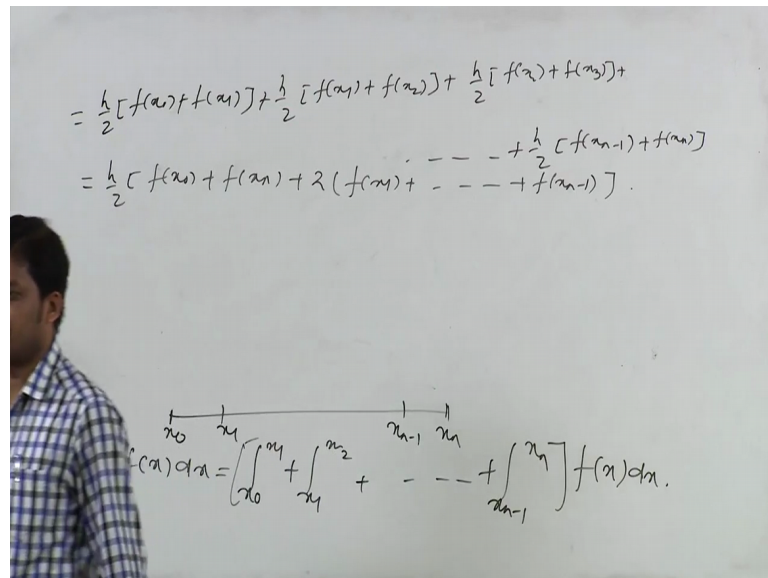 = h/2 [f(x₀) + f(x₁)] + h/2 [f(x₁) + f(x₂)] + h/2 [f(x₂) + f(x₃)] +
. - - - - + h/2 [f(xₙ₋₁) + f(xₙ)]
= h/2 [f(x₀) + f(xₙ) + 2(f(x₁) + - - - - + f(xₙ₋₁)].
x₀ x₁ xₙ₋₁ xₙ
f(x) dx = [∫_{x₀}^{x₁} + ∫_{x₁}^{x₂} + - - - - + ∫_{xₙ₋₁}^{xₙ}] f(x) dx.